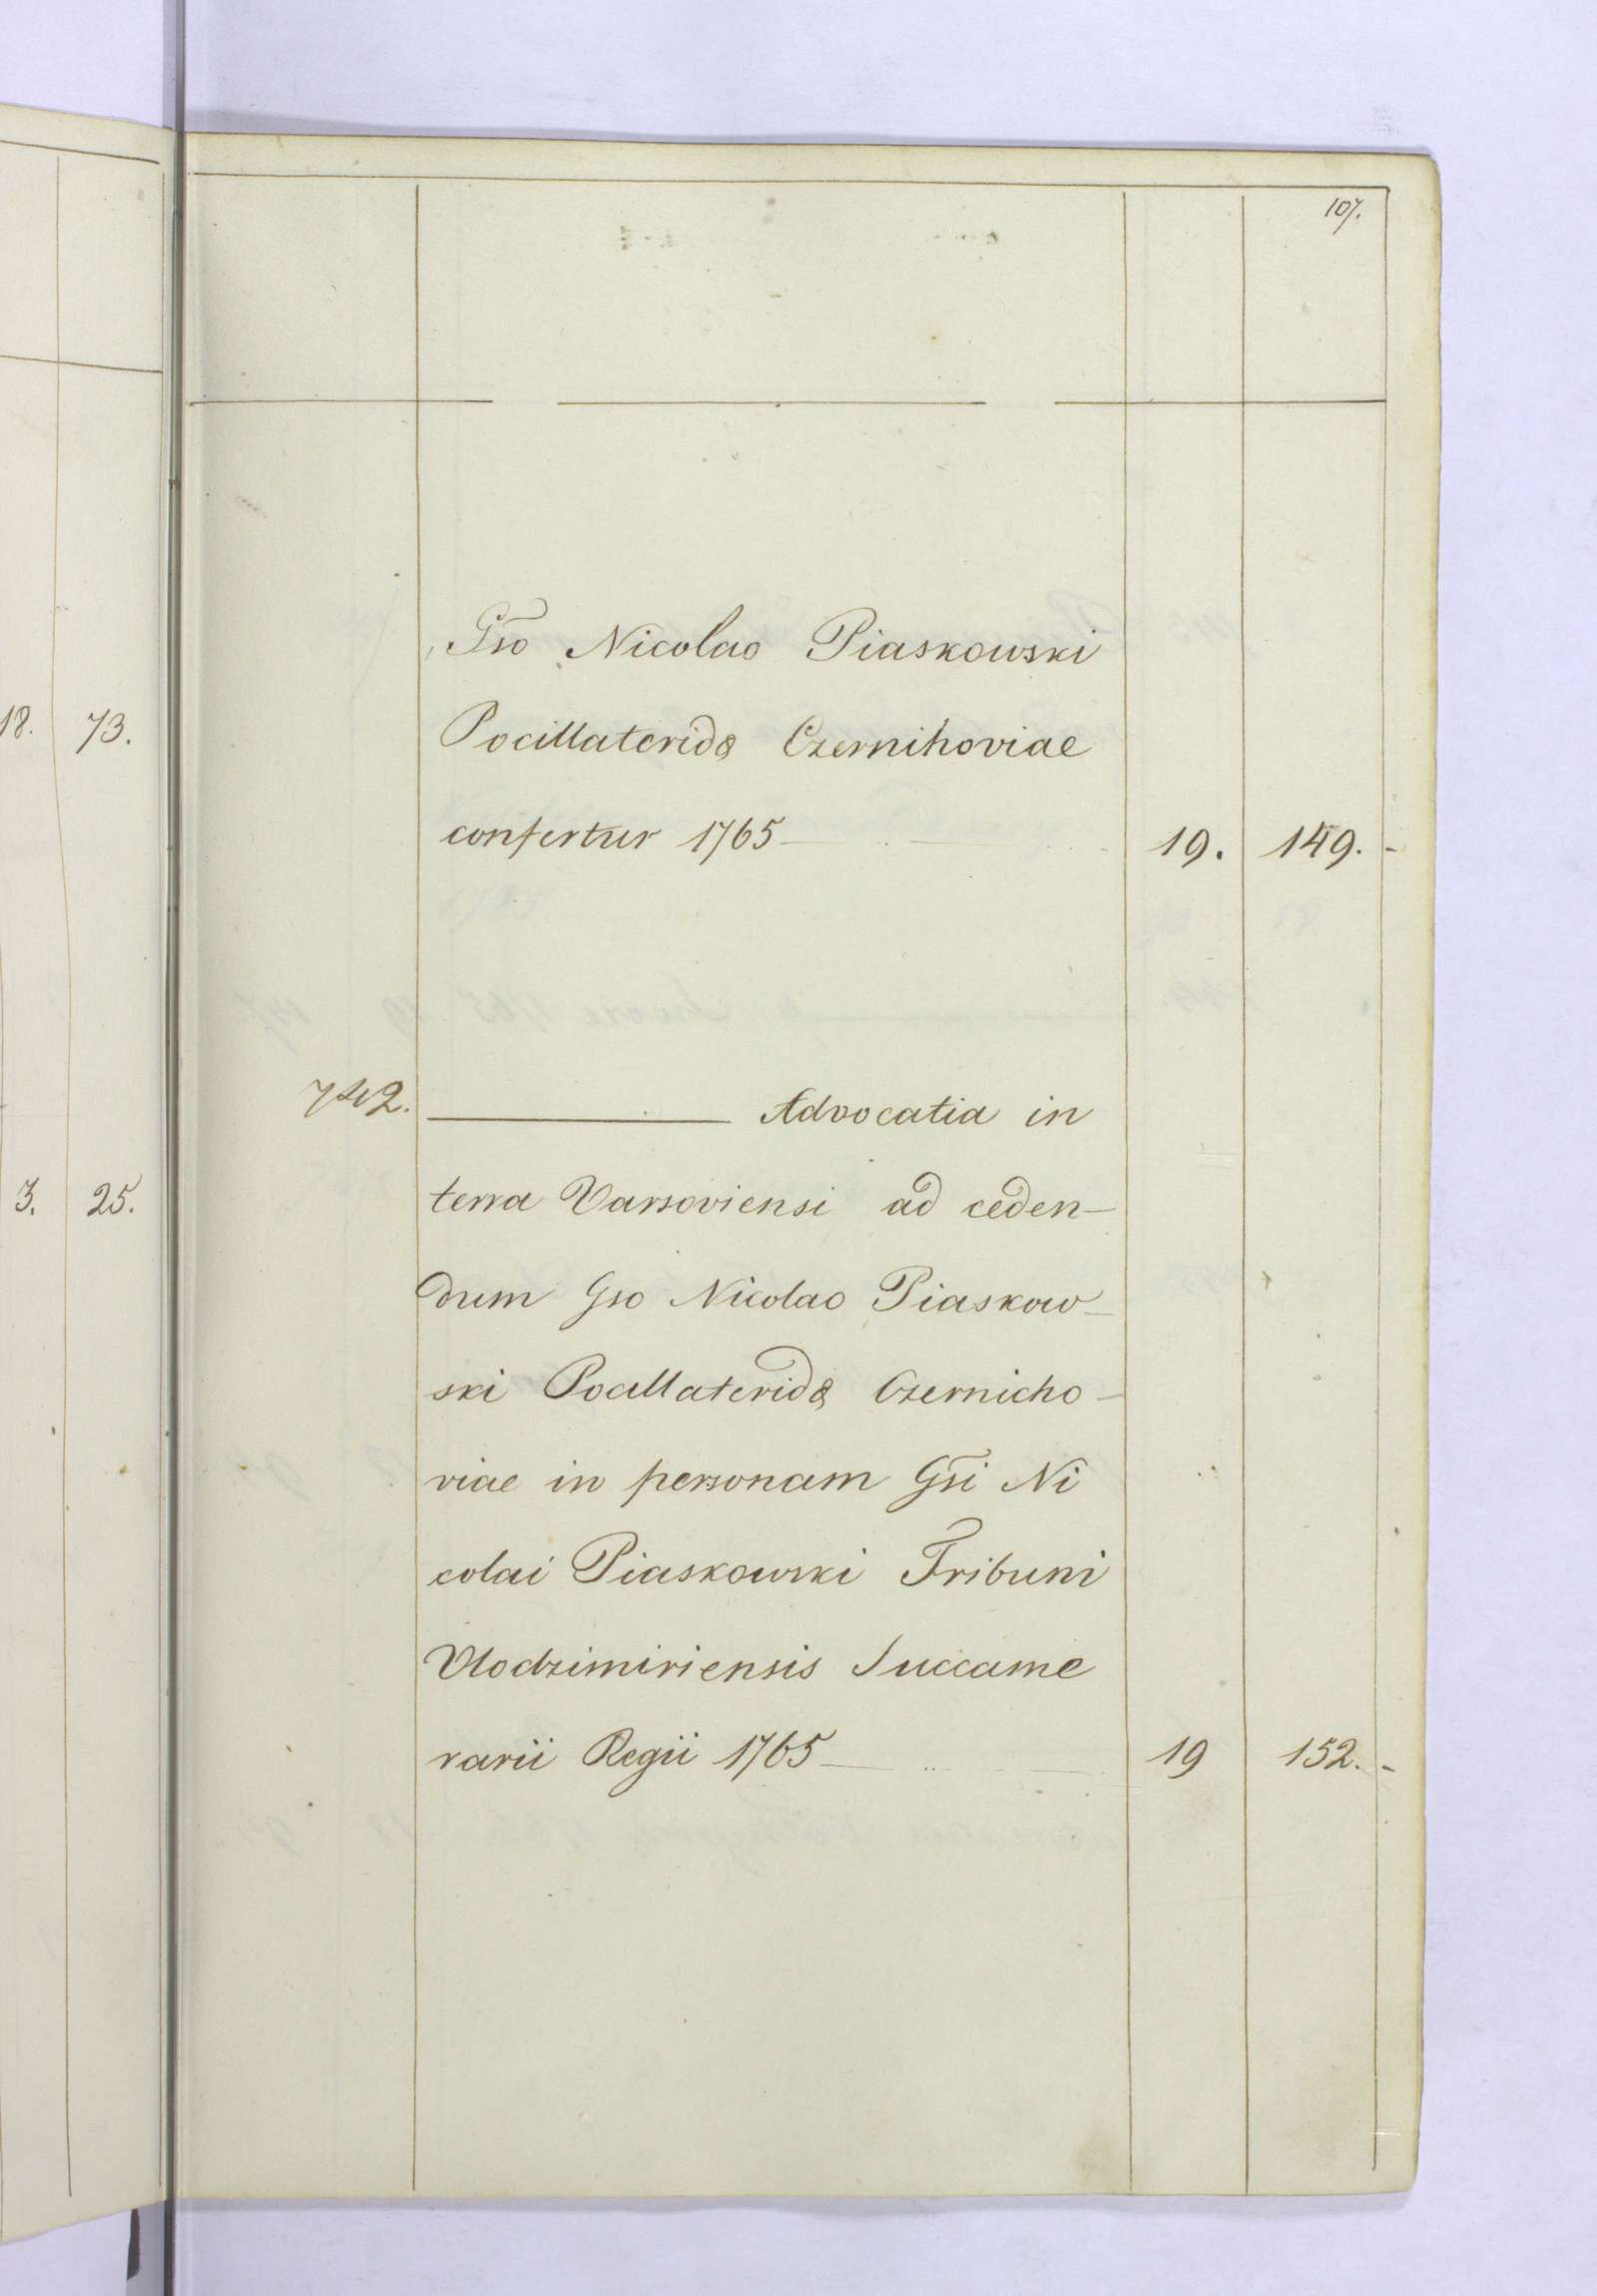 107.
18. 73.
Gso Nicolao Piaskowski
Pocillaterida Czernihoviae
confertur 1765 19. 149.
742. Advocatia in
3. 25.
terra Varsoviensi ad ceden-
dum Gso Nicolao Piaskow-
ski Pocillaterida Czernicho-
viae in personam Gsi Ni
colai Piaskowski Tribuni
Vlodzimiriensis Succame
rarii Regii 1765 19 152.